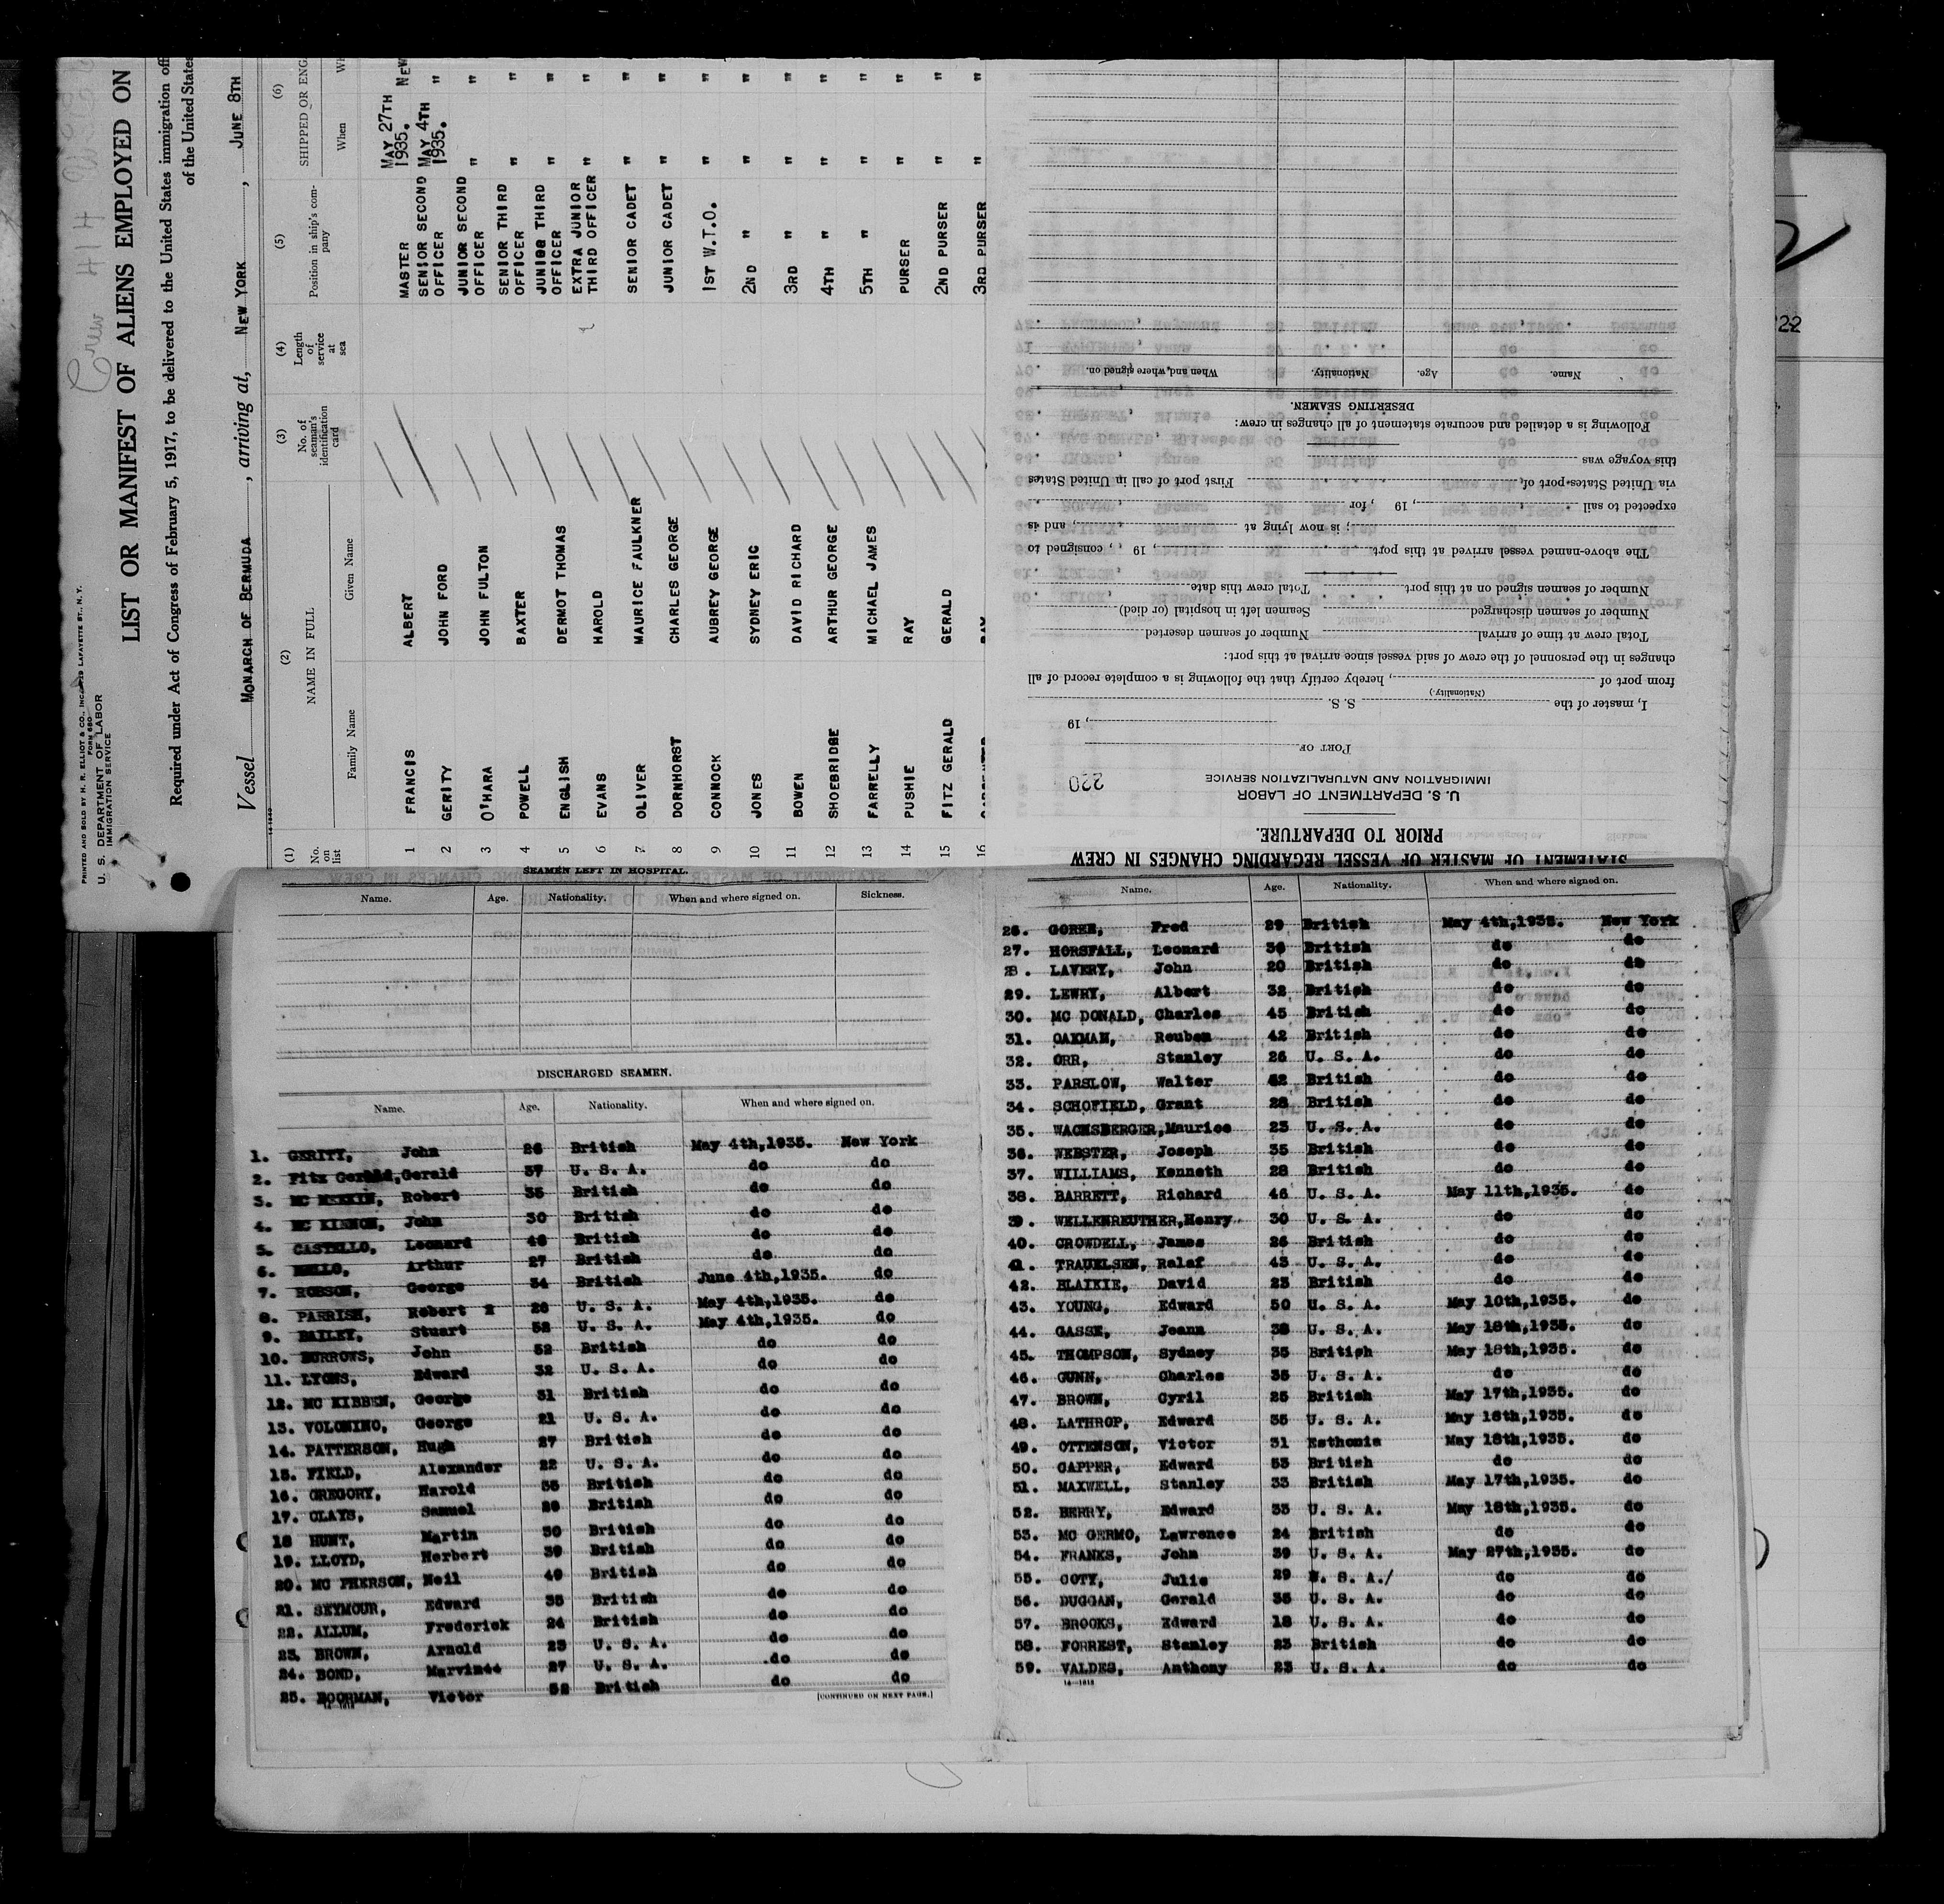 PRINTED AND SOLD BY H. R. ELLIOT & CO., INC. LAFAYETTE ST., N. Y.
FORM 680
U. S. DEPARTMENT OF LABOR
IMMIGRATION SERVICE
Crew 414
LIST OR MANIFEST OF ALIENS EMPLOYED ON
Required under Act of Congress of February 5, 1917, to be delivered to the United States immigration off
of the United States
Vessel MONARCH OF BERMUDA , arriving at, NEW YORK , JUNE 8TH
(1) (2) (3) (4) (5) (6)
No. on list NAME IN FULL No. of seaman's identification card Length of service at sea Position in ship's company SHIPPED OR ENG
Family Name Given Name When Wh
1 FRANCIS ALBERT MASTER MAY 27TH 1935. NEW
2 GERITY JOHN FORD SENIOR SECOND OFFICER MAY 4TH 1935. "
3 O'HARA JOHN FULTON JUNIOR SECOND OFFICER " "
4 POWELL BAXTER SENIOR THIRD OFFICER " "
5 ENGLISH DERMOT THOMAS JUNIOR THIRD OFFICER " "
6 EVANS HAROLD EXTRA JUNIOR THIRD OFFICER " "
7 OLIVER MAURICE FAULKNER SENIOR CADET " "
8 DORNHORST CHARLES GEORGE JUNIOR CADET " "
9 CONNOCK AUBREY GEORGE 1ST W.T.O. " "
10 JONES SYDNEY ERIC 2ND " " "
11 BOWEN DAVID RICHARD 3RD " " "
12 SHOEBRIDGE ARTHUR GEORGE 4TH " " "
13 FARRELLY MICHAEL JAMES 5TH " " "
14 PUSHIE RAY PURSER " "
15 FITZ GERALD GERALD 2ND PURSER " "
16 3RD PURSER " "
STATEMENT OF MASTER OF VESSEL REGARDING CHANGES IN CREW
PRIOR TO DEPARTURE.
U. S. DEPARTMENT OF LABOR
IMMIGRATION AND NATURALIZATION SERVICE
220
PORT OF
, 19
I, master of the S. S.
(Nationality.)
from port of , hereby certify that the following is a complete record of all
changes in the personnel of the crew of said vessel since arrival at this port:
Total crew at time of arrival Number of seamen deserted
Number of seamen discharged Seamen left in hospital (or died)
Number of seamen signed on at this port Total crew this date
The above-named vessel arrived at this port , 19 , consigned to
; is now lying at , and is
expected to sail , 19 , for
via United States port of First port of call in United States
this voyage was
Following is a detailed and accurate statement of all changes in crew:
DESERTING SEAMEN.
Name. Age. Nationality. When and where signed on.
22
SEAMEN LEFT IN HOSPITAL.
Name. Age. Nationality. When and where signed on. Sickness.
DISCHARGED SEAMEN.
Name. Age. Nationality. When and where signed on.
1. GERITY, John 26 British May 4th,1935. New York
2. Fitz Gerald, Gerald 37 U. S. A. do do
3. Robert 35 British do do
4. MC KINNON, John 30 British do do
5. CASTELLO, Leonard British do do
6. Arthur 27 British do do
7. ROBSON, George 34 British June 4th,1935. do
8. PARRISH, Robert U. S. A. May 4th,1935. do
9. BAILEY, Stuart 52 U. S. A. May 4th,1935. do
10. BURROWS, John 52 British do do
11. LYONS, Edward 32 U. S. A. do do
12. MC KIBBEN, George 31 British do do
13. VOLONINO, George 21 U. S. A. do do
14. PATTERSON, Hugh 27 British do do
15. FIELD, Alexander 22 U. S. A. do do
16. GREGORY, Harold British do do
17. CLAYS, Samuel British do do
18 HUNT, Martin 30 British do do
19. LLOYD, Herbert 39 British do do
20. MC PHERSON, Neil British do do
21. SEYMOUR, Edward 35 British do do
22. ALLUM, Frederick 24 British do do
23. BROWN, Arnold 23 U. S. A. do do
24. BOND, Marvin 27 U. S. A. do do
25. BOORMAN, Victor British do do
[CONTINUED ON NEXT PAGE.]
Name. Age. Nationality. When and where signed on.
26. Fred 29 British May 4th,1935. New York
27. HORSFALL, Leonard British do do
28. LAVERY, John 20 British do do
29. LEWRY, Albert 32 British do do
30. MC DONALD, Charles 45 British do do
31. OAKMAN, Reuben 42 British do do
32. ORR, Stanley 26 U. S. A. do do
33. PARSLOW, Walter British do do
34. SCHOFIELD, Grant 28 British do do
35. WACHSBERGER, Maurice 23 U. S. A. do do
36. WEBSTER, Joseph 35 British do do
37. WILLIAMS, Kenneth 28 British do do
38. BARRETT, Richard 46 U. S. A. May 11th,1935. do
39. WELLENREUTHER, Henry 30 U. S. A. do do
40. CROWDELL, James 26 British do do
41. TRAUELSEN, Ralaf 43 U. S. A. do do
42. BLAIKIE, David 23 British do do
43. YOUNG, Edward 50 U. S. A. May 10th,1935. do
44. GASSE, Jeann U. S. A. May 18th,1935. do
45. THOMPSON, Sydney 35 British May 18th,1935. do
46. GUNN, Charles 35 U. S. A. do do
47. BROWN, Cyril 25 British May 17th,1935. do
48. LATHROP, Edward 35 U. S. A. May 18th,1935. do
49. OTTENSON, Victor 31 Esthonia May 18th,1935. do
50. CAPPER, Edward 53 British do do
51. MAXWELL, Stanley 33 British May 17th,1935. do
52. BERRY, Edward 33 U. S. A. May 18th,1935. do
53. MC GERMO, Lawrence 24 British do do
54. FRANKS, John 39 U. S. A. May 27th,1935. do
55. COTY, Julie 29 U. S. A./ do do
56. DUGGAN, Gerald 35 U. S. A. do do
57. BROOKS, Edward 18 U. S. A. do do
58. FORREST, Stanley 23 British do do
59. VALDES, Anthony 23 U. S. A. do do